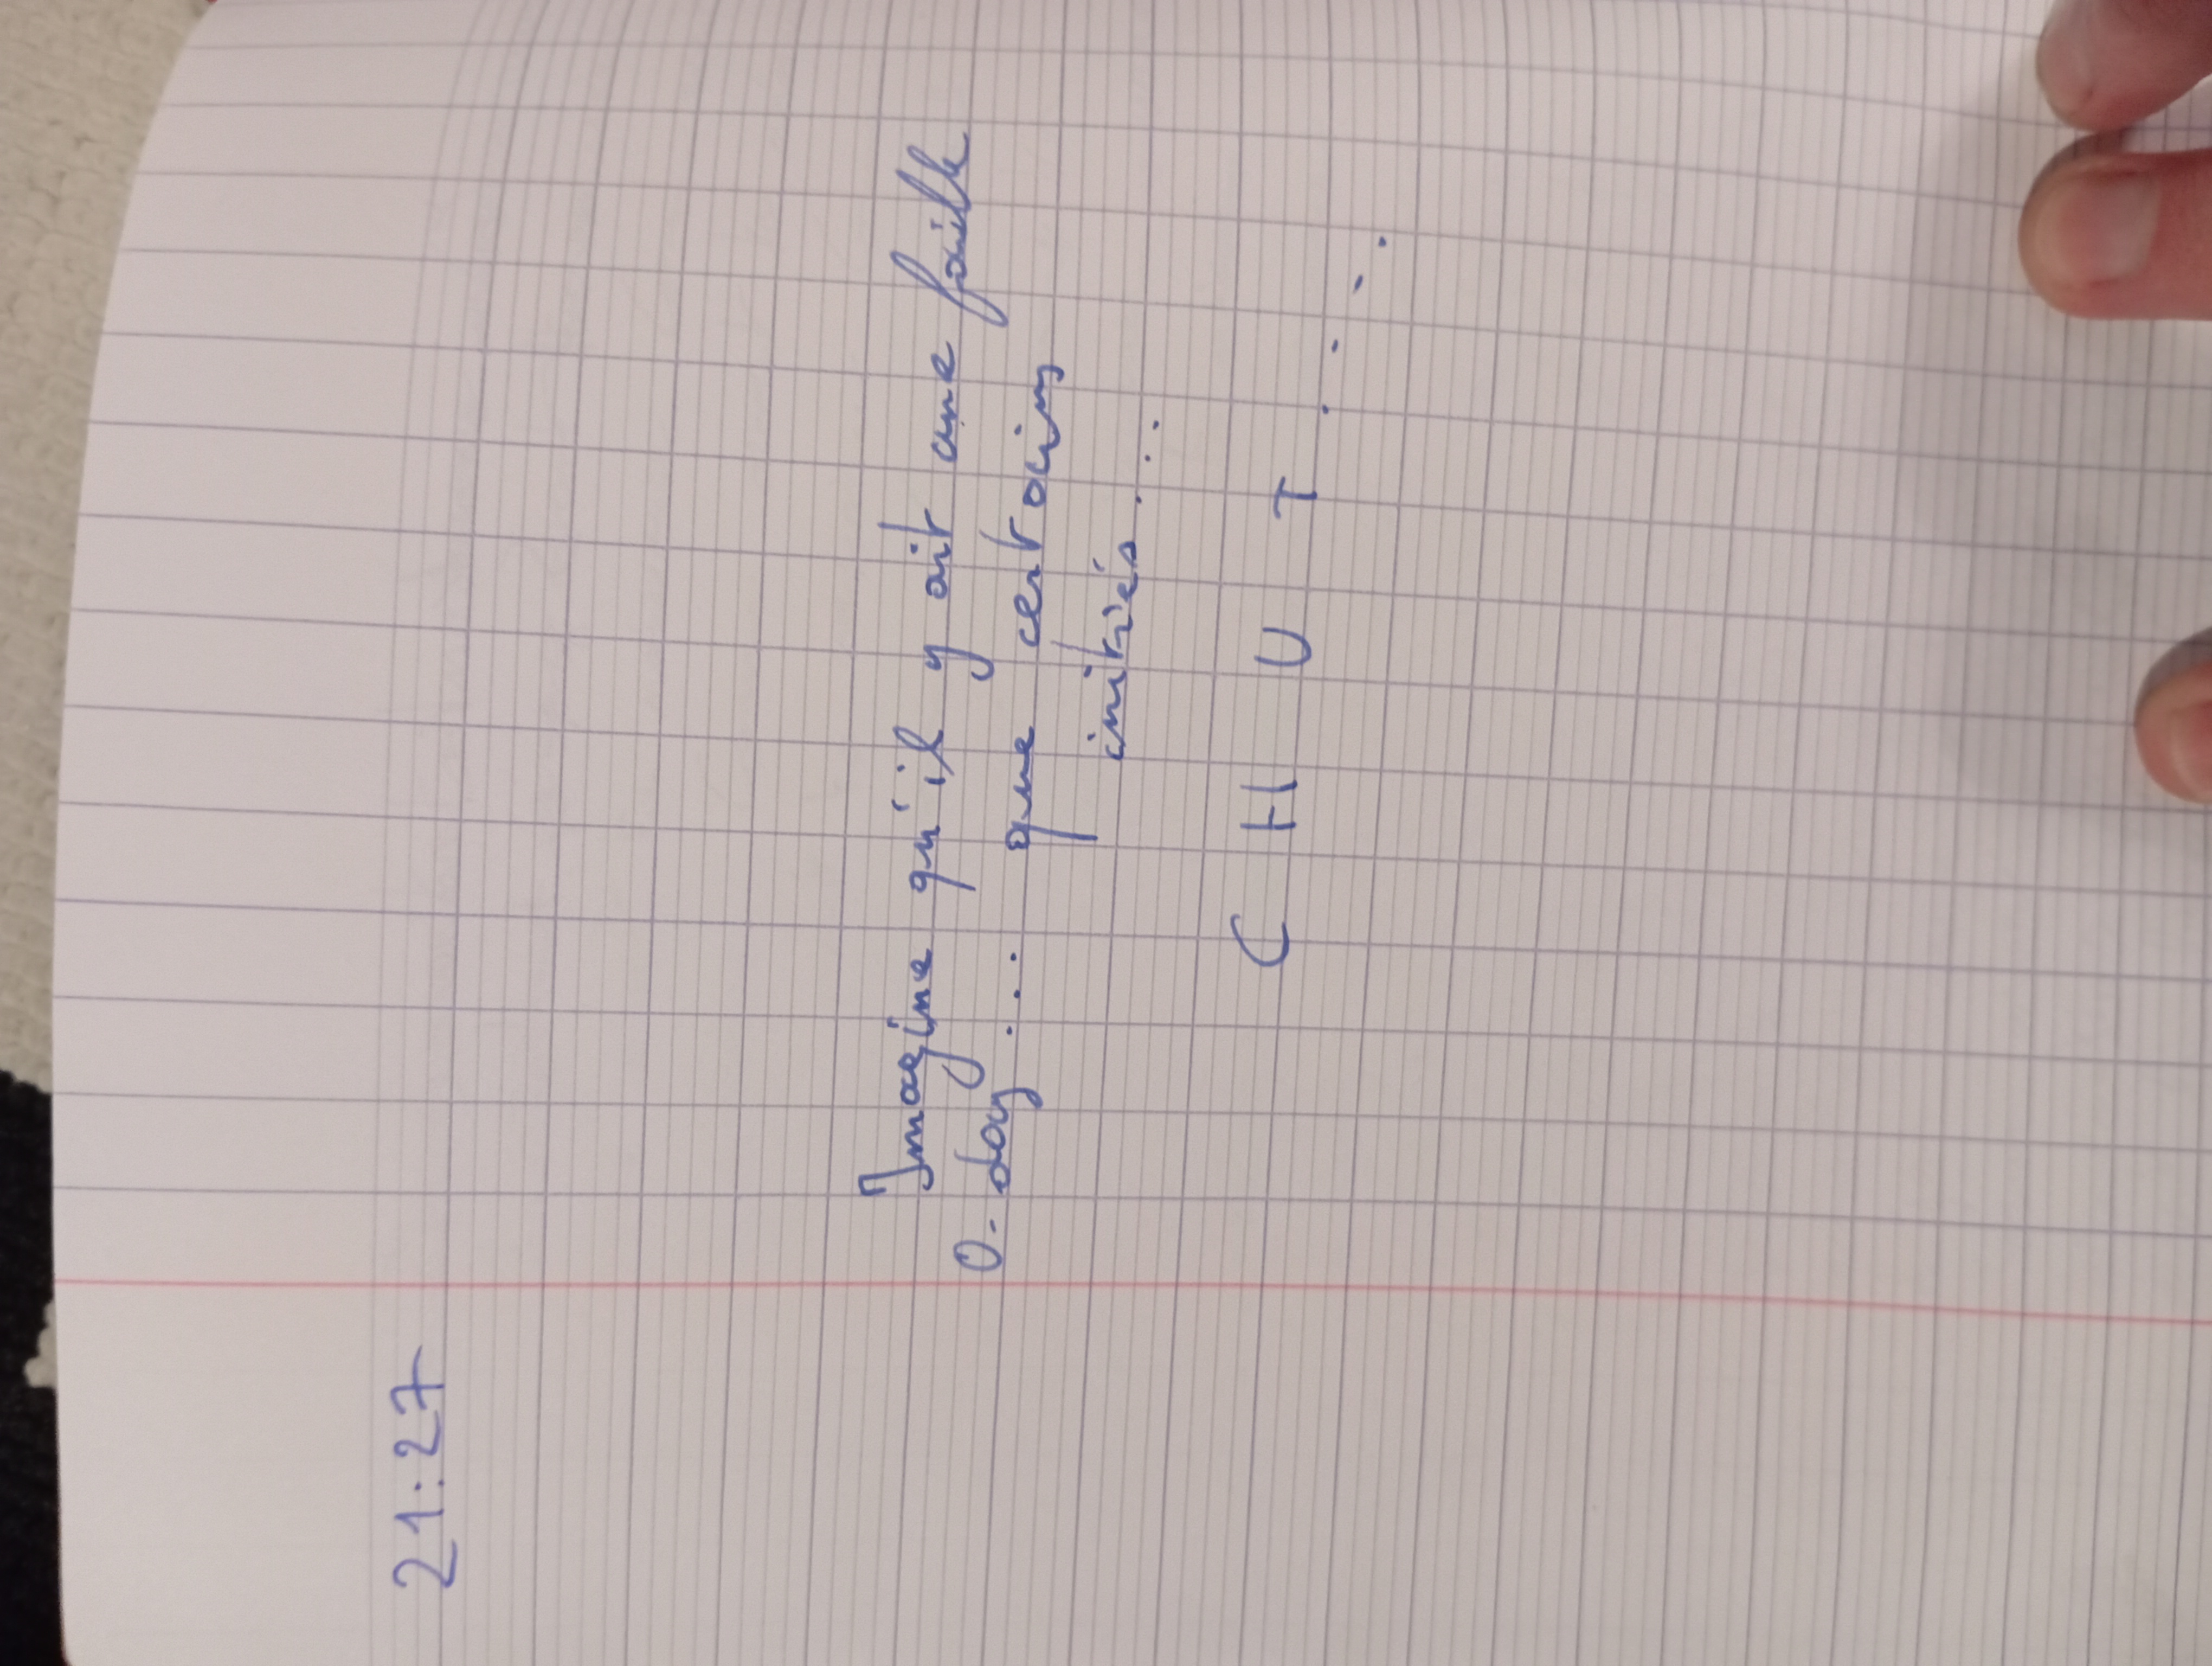 21:27
Imagine qu'il y ait une faille
0-day... que certains
initiés...
C H U T....